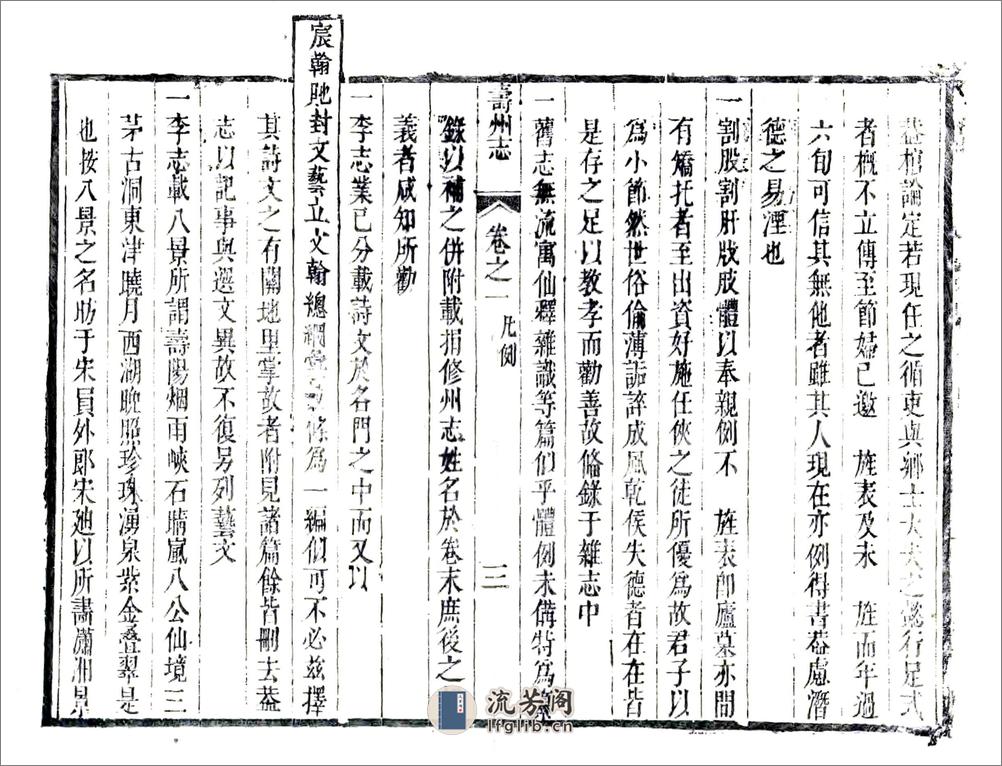 蓋棺論定若現任之循吏與鄉士大夫之懿行足式
者槪不立傳至節婦已邀　旌表及未　旌而年過
六旬可信其無他者雖其人現在亦例得書葢慮潛
德之易湮也
一割股割肝戕肢體以奉親例不　旌表卽廬墓亦間
有矯托者至出資好施任俠之徒所優爲故君子以
爲小節然世俗偷薄詬誶成風乾餱失德者在在皆
是存之足以教孝而勸善故俻錄于雜志中
一舊志無流寓仙釋雜識等篇似乎體例未備特爲
壽州志　卷之一　凡例　三
錄以補之併附載捐修州志姓名於卷末庶後之
義者咸知所勸
一李志業已分載詩文於名門之中而又以
宸翰貤封文藝立文翰總綱　條爲一編似可不必茲擇
其詩文之有關地里掌故者附見諸篇餘皆刪去葢
志以記事與選文異故不復另列藝文
一李志載八景所謂壽陽烟雨峽石晴嵐八公仙境三
茅古洞東津曉月西湖晚照珍珠湧泉紫金叠翠是
也按八景之名昉于宋員外郎宋廸以所畵瀟湘景
流芳阁
lfglib.cn